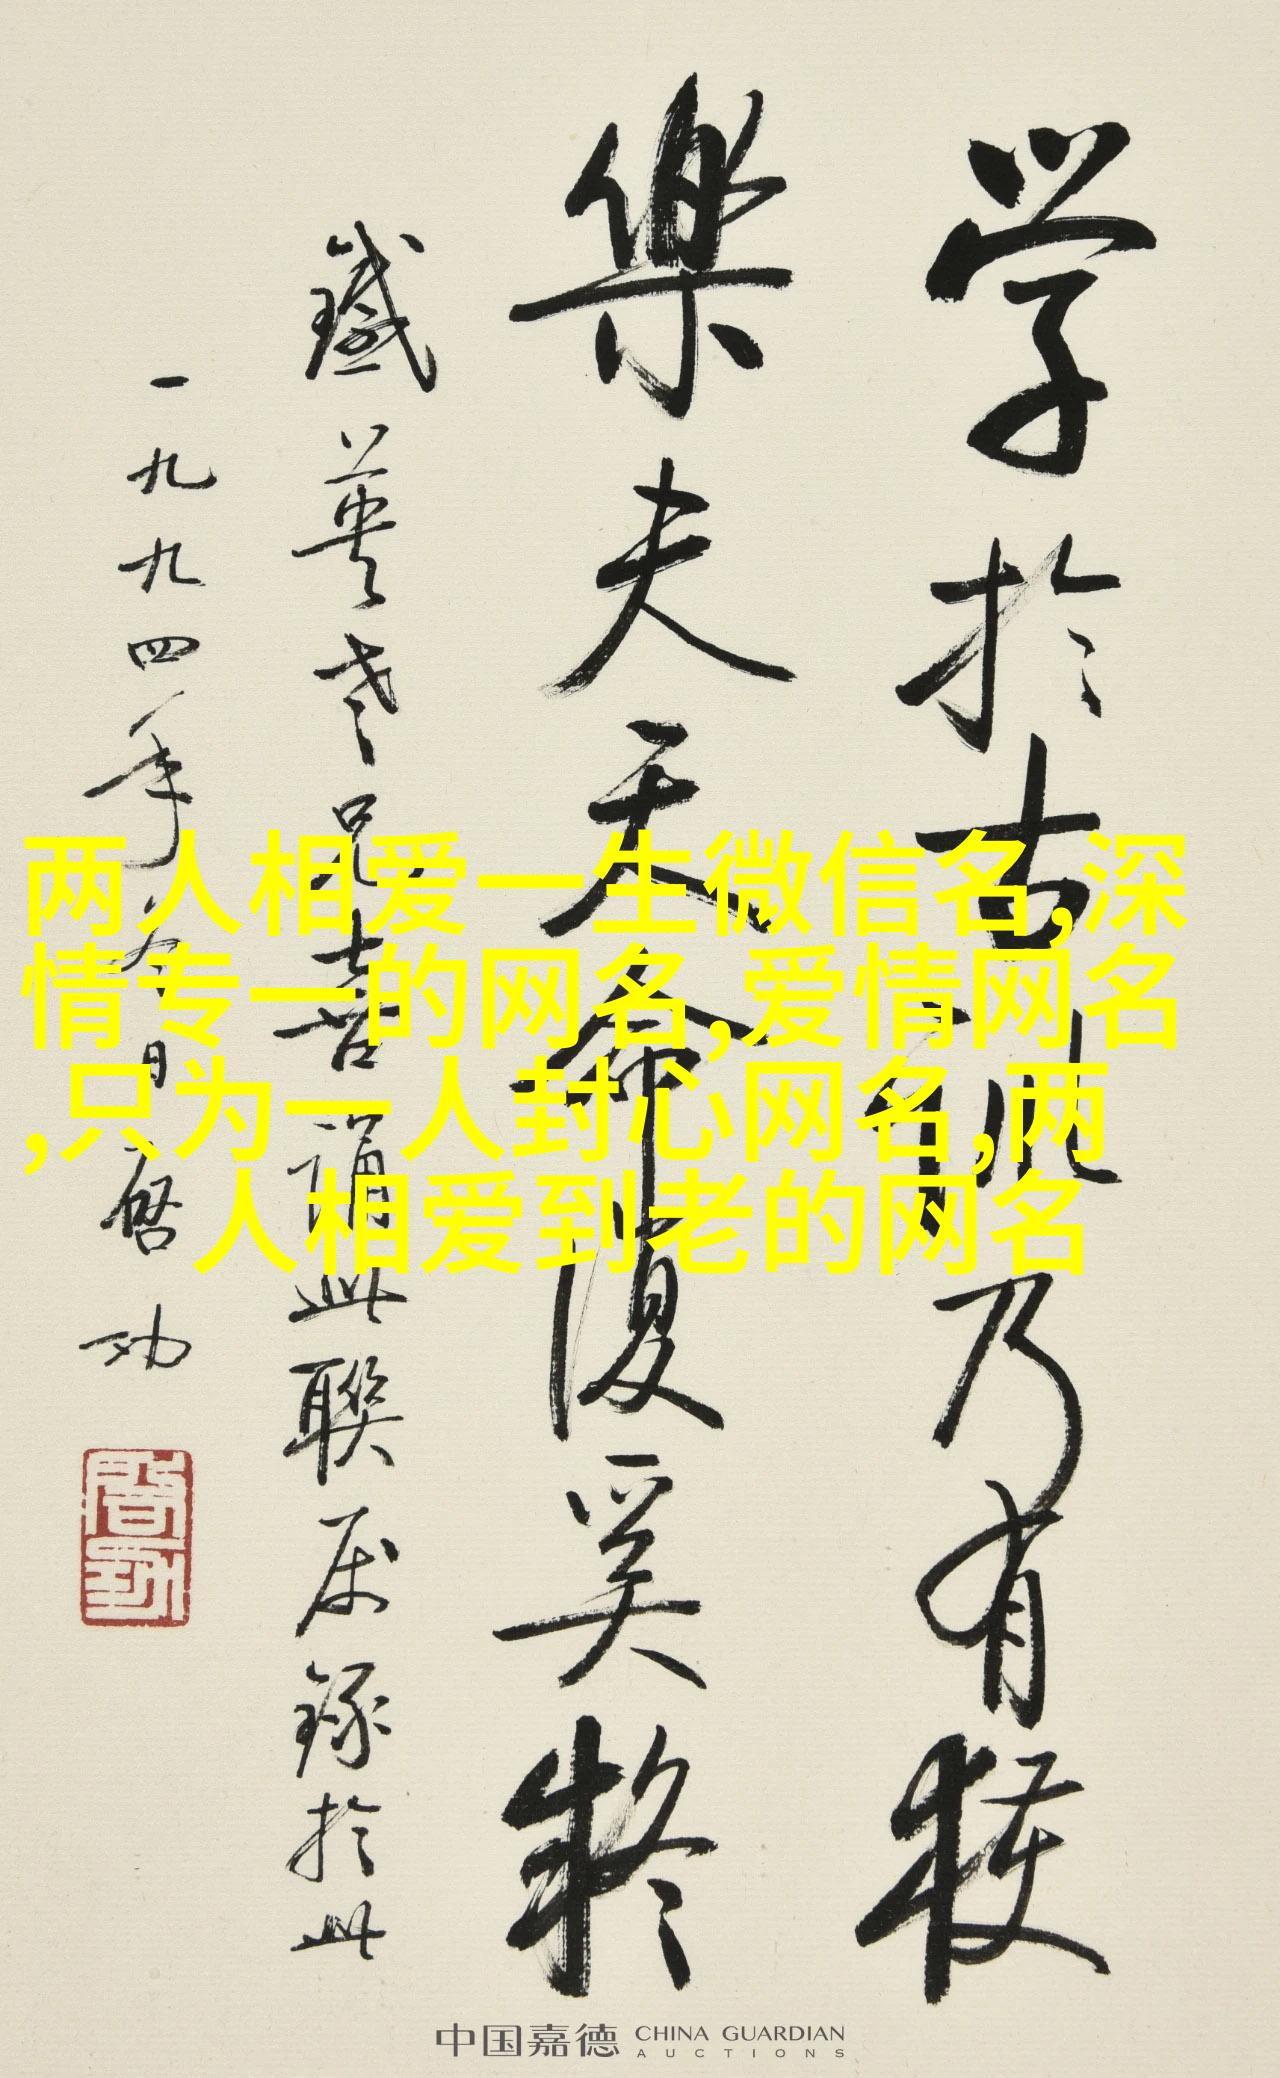 学於古訓乃有獲
樂夫天命復奚疑
鐵英老兄喜誦此聯屬錄於此
一九九四年 日 啓功
两人相爱一生微信名,深
情专一的网名,爱情网名
,只为一人封心网名,两
人相爱到老的网名
中国嘉德 CHINA GUARDIAN
AUCTIONS